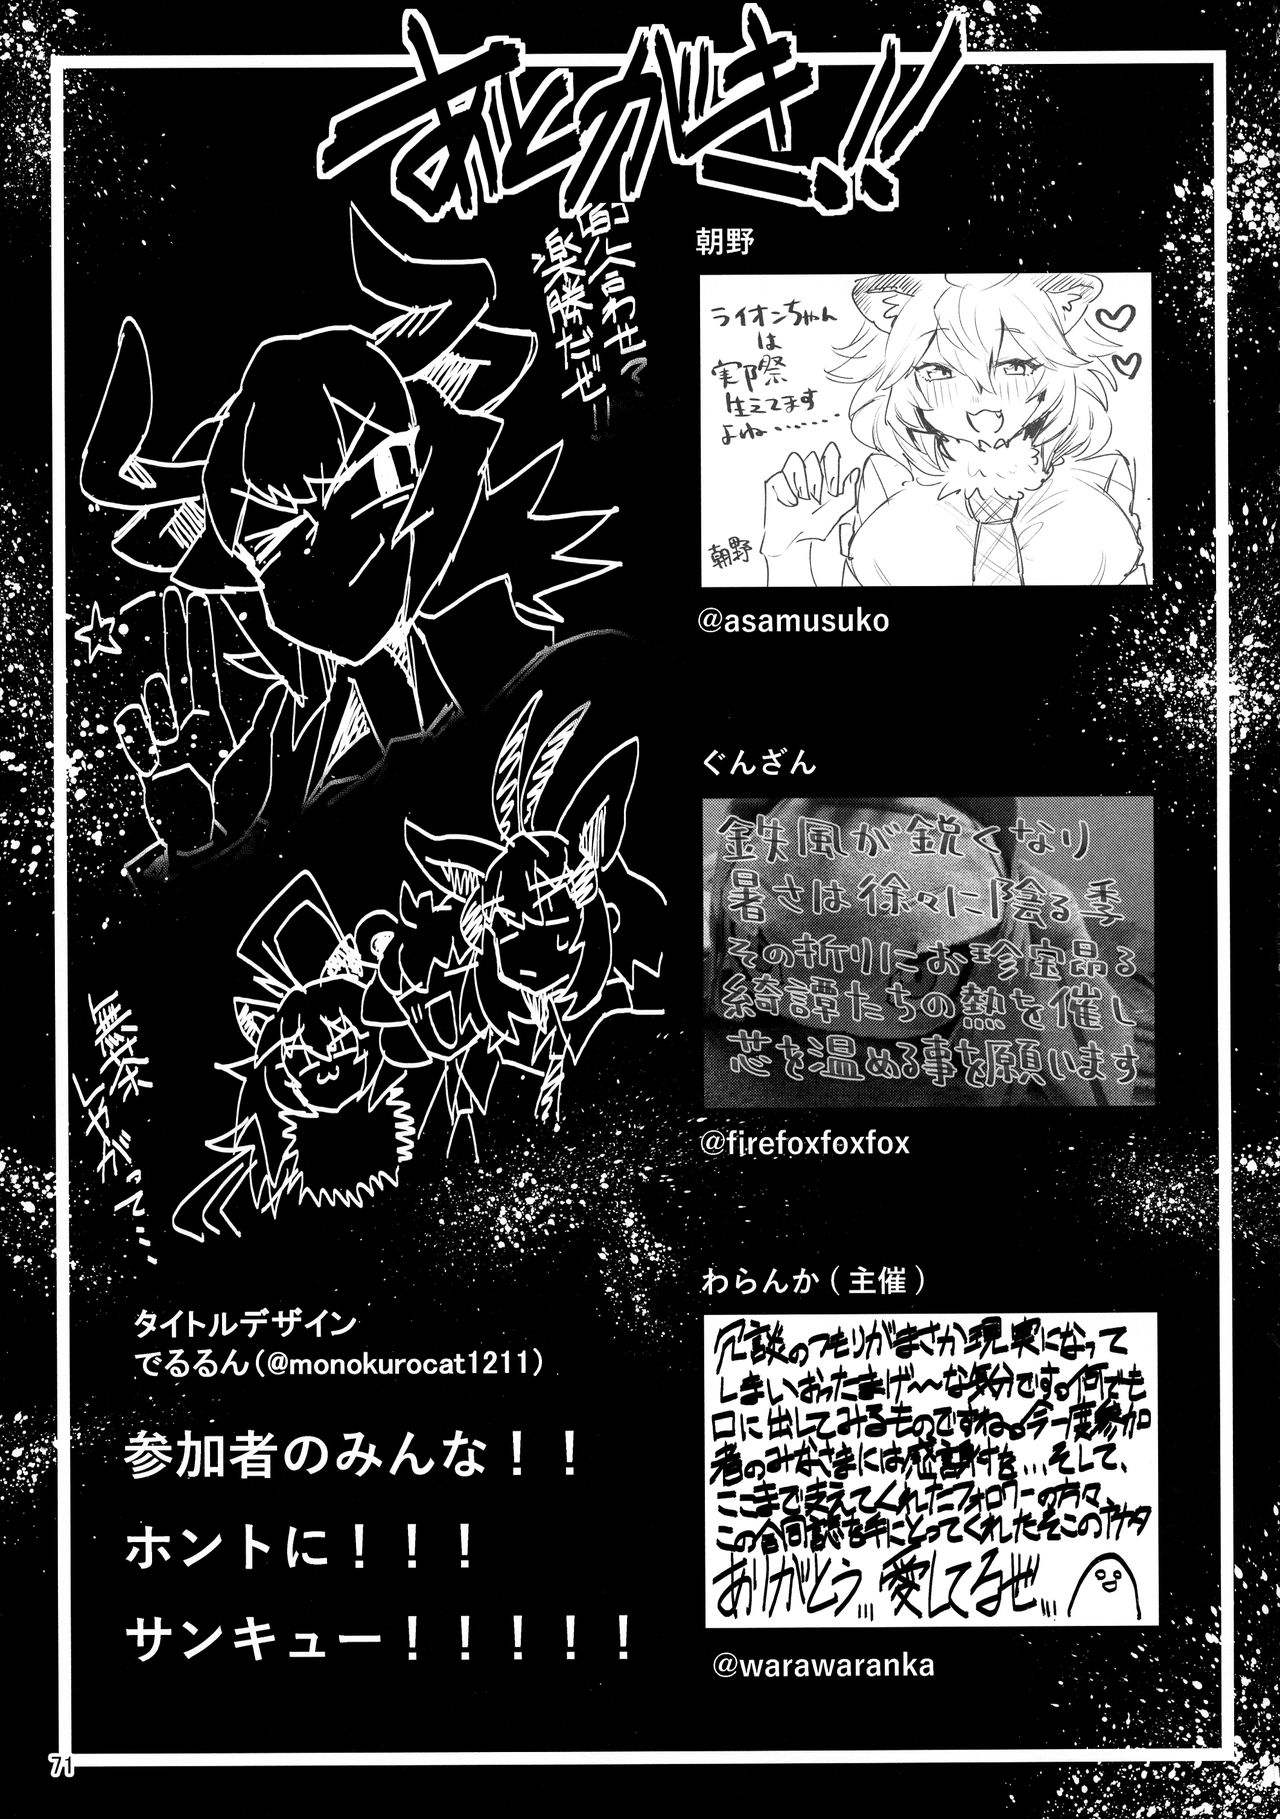 あとがき!!
臭い合わせ?
楽勝だぜ!!
無茶
しやがって…
朝野
ライオンちゃん
は
実際
生えてます
よね………
朝野
@asamusuko
ぐんざん
鉄風が鋭くなり
暑さは徐々に陰る季
その折りにお珍宝昂る
綺譚たちの熱を催し
芯を温める事を願います
@firefoxfoxfox
わらんか(主催)
冗談のつもりがまさか現実になって
しまいおったまげ〜な気分です。何でも
口に出してみるものですね。今一度参加
者のみなさまには感謝を…そして、
ここまで支えてくれたフォロワーの方々、
この合同誌を手にとってくれたそこのアナタ
ありがとう!!! 愛してるぜ!!!
@warawaranka
タイトルデザイン
でるるん(@monokurocat1211)
参加者のみんな！！
ホントに！！！
サンキュー！！！！！
71